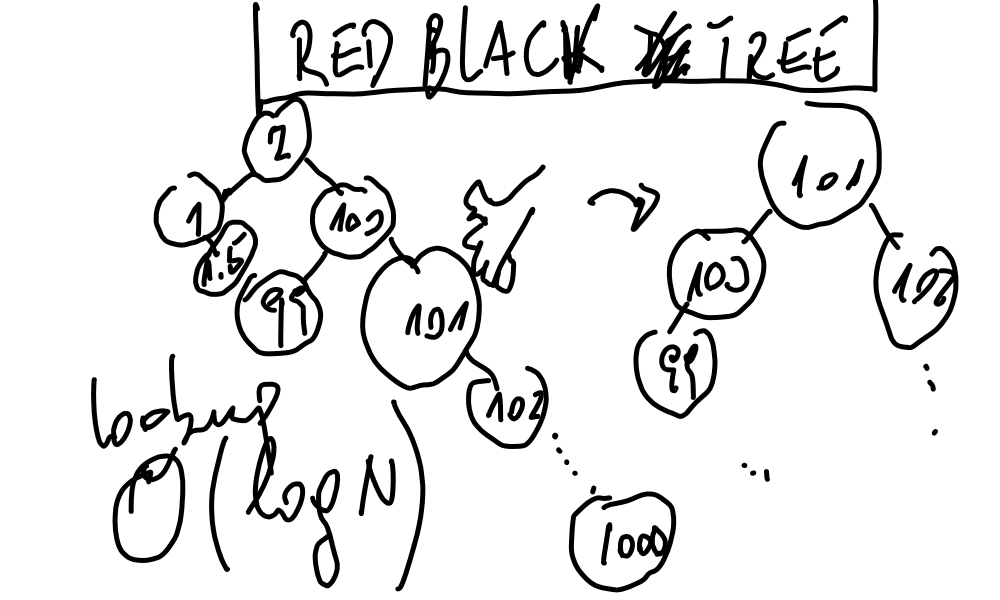 RED BLACK TREE
2
1
100
1.5
99
101
102
1000
101
100
99
102
lookup
O(log N)